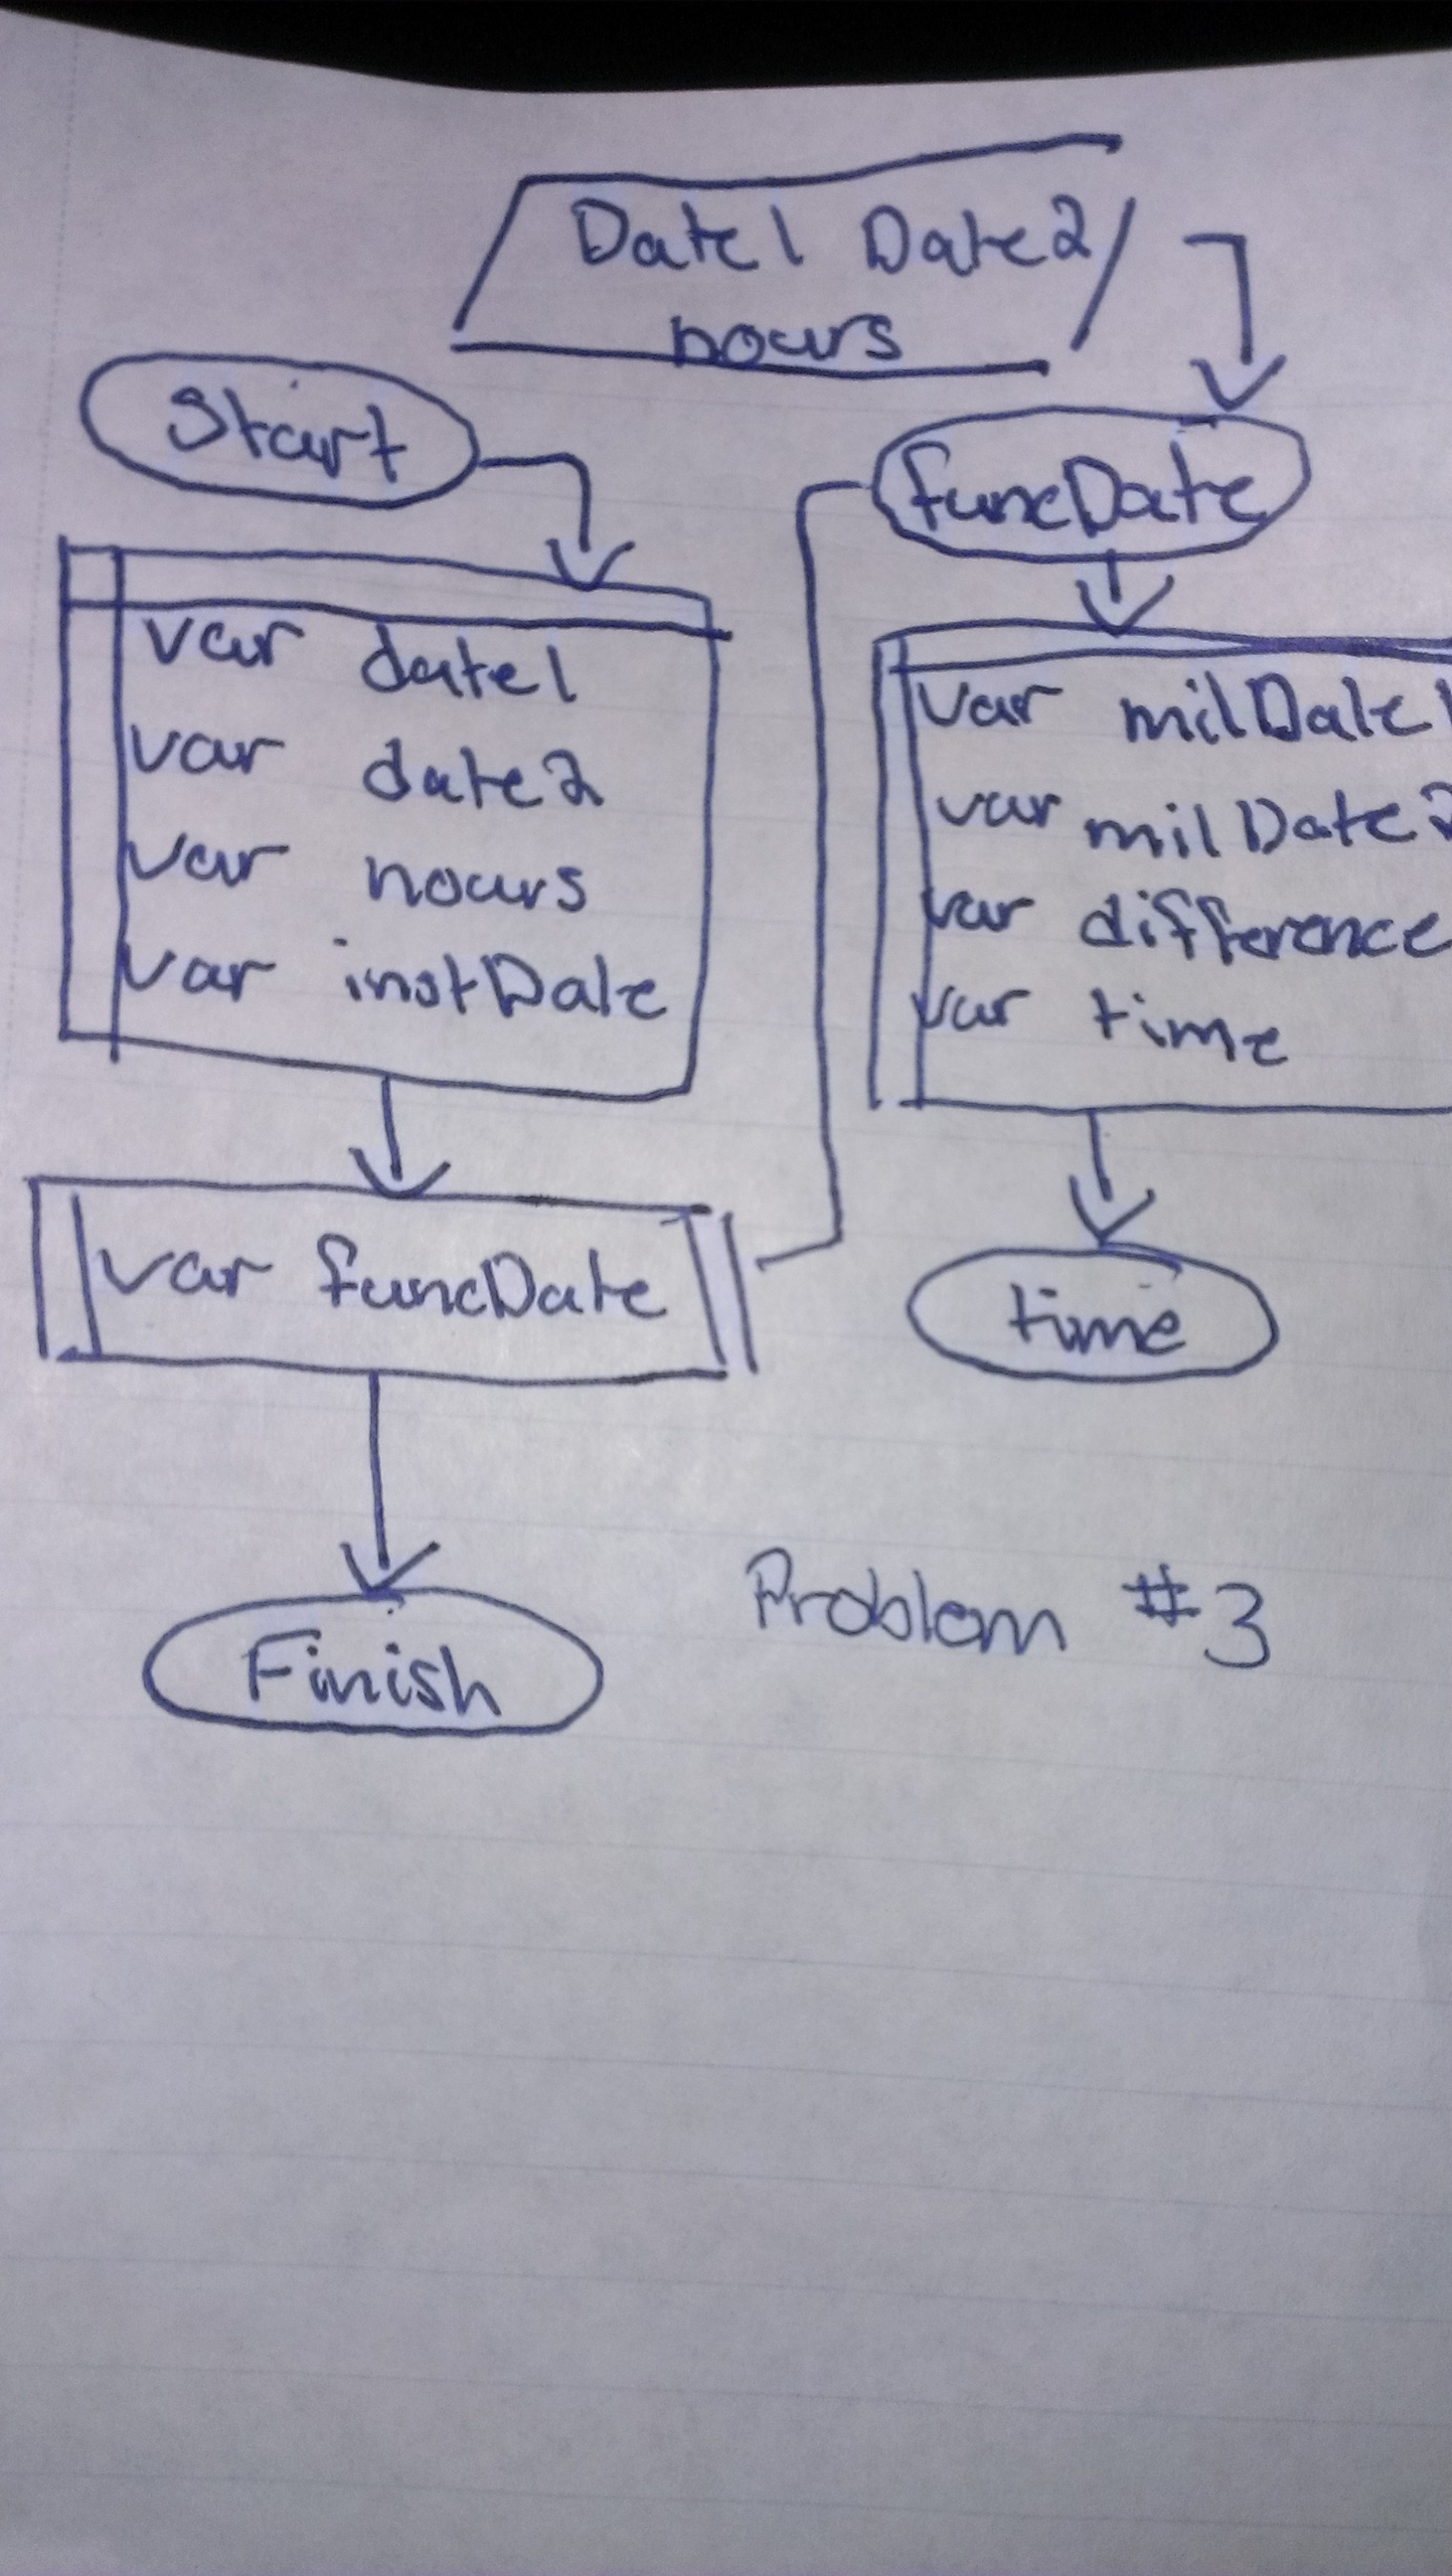 Date1 Date2
hours
Start
var date1
var date2
var hours
var instDate
var funcDate
Finish
funcDate
var milDate1
var milDate2
var difference
var time
time
Problem #3